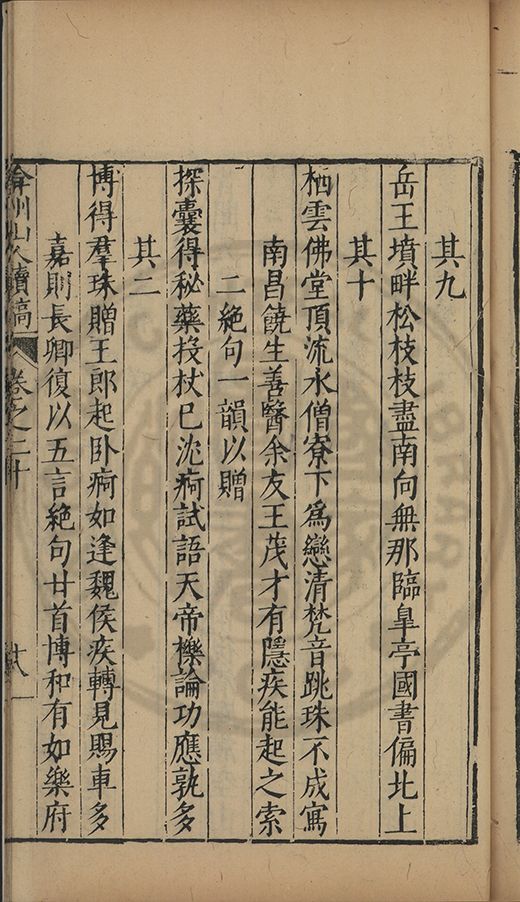 其九
岳王墳畔松枝枝盡南向無那臨皐亭國書偏北上
其十
栖雲佛堂頂流水僧寮下為戀清梵音跳珠不成寫
南昌饒生善醫余友王茂才有隱疾能起之索
二絶句一韻以贈
探囊得秘藥投杖已沈痾試語天帝櫟論功應孰多
其二
博得羣珠贈王郎起卧痾如逢魏侯疾轉見賜車多
嘉則長卿復以五言絶句廿首博和有如樂府
弇州山人續稿 卷之二十 廿八